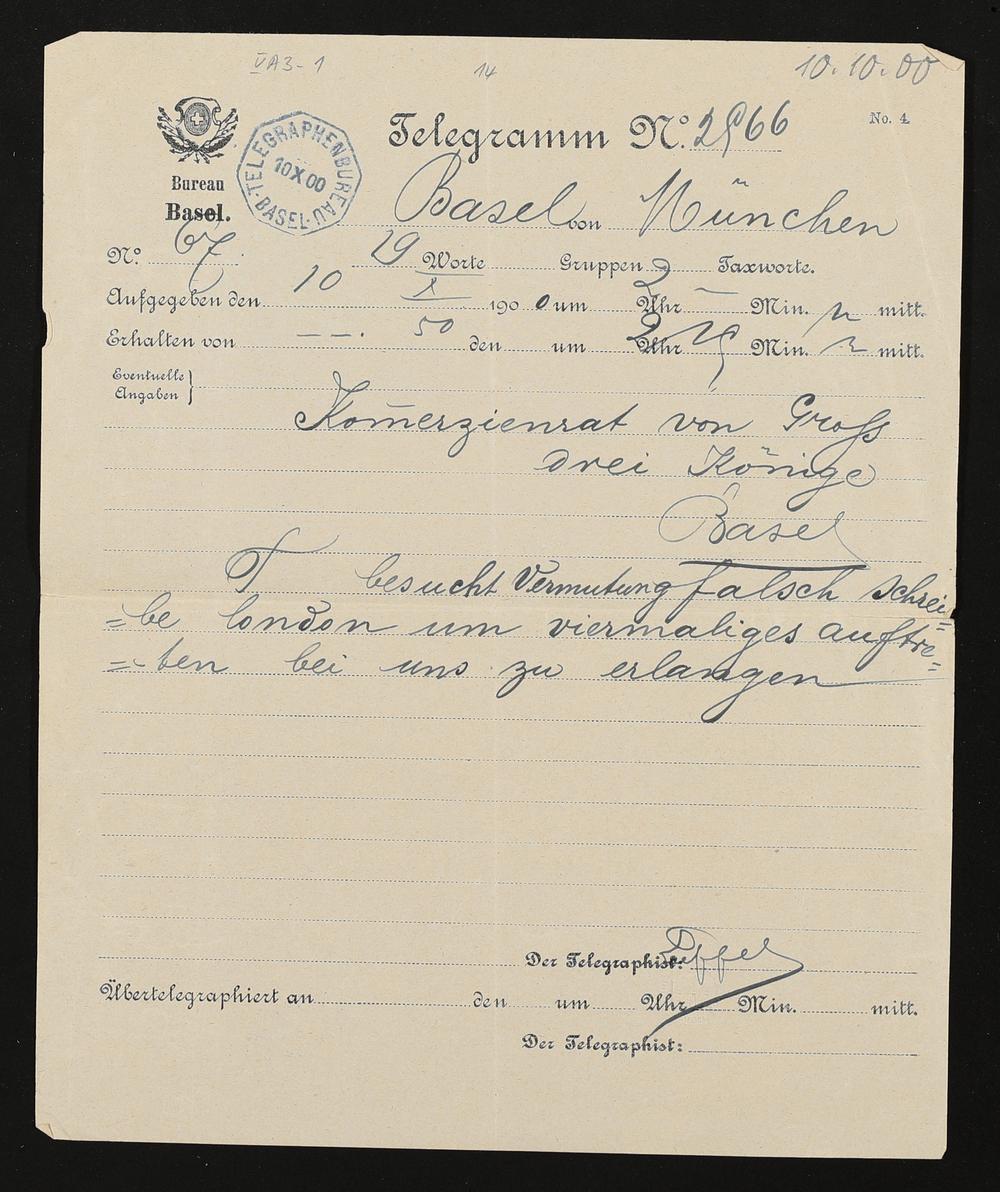 VA3-1 14 10.10.00
Telegramm No. 2966 No. 4
TELEGRAPHENBUREAU
10 X 00
BASEL
Bureau
Basel.
Basel von München
No. 67 19 Worte Gruppen Taxworte.
Aufgegeben den 10 X 1900 um 2 Uhr – Min. n mitt.
Erhalten von 50 den um 2 Uhr Min. n mitt.
Eventuelle
Angaben
Kom̄erzienrat von Gross
drei Könige
Basel
T besucht Vermutung falsch schrei=
=be london um viermaliges auftre=
=ten bei uns zu erlangen
Der Telegraphist:
Übertelegraphiert an den um Uhr Min. mitt.
Der Telegraphist: